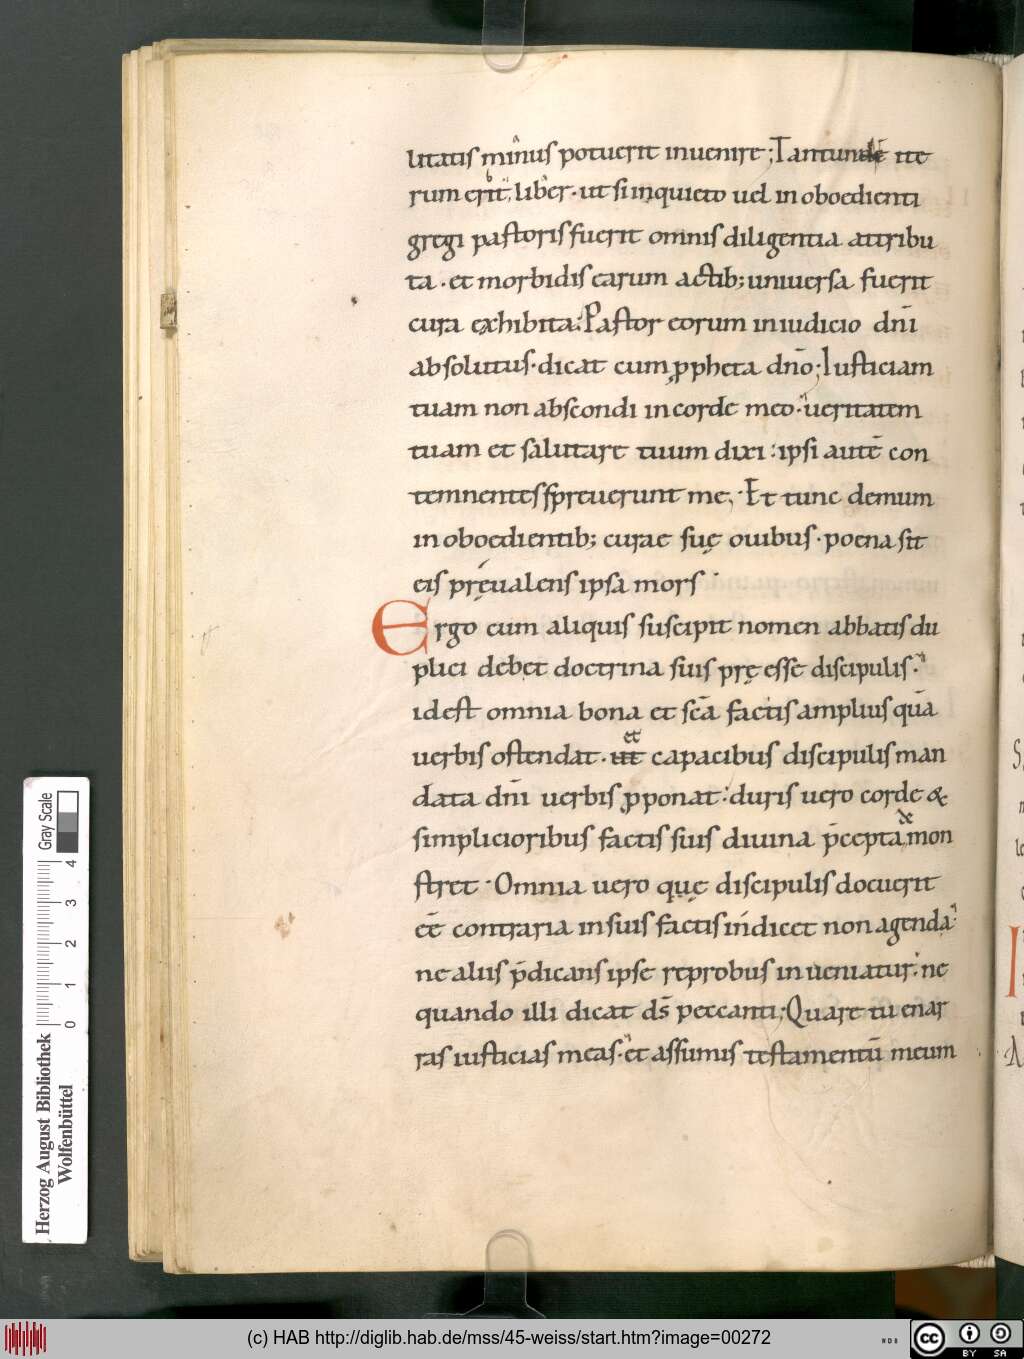 litatis minus potuerit inuenire; Tantundē ite
rum erit, liber· ut si inquieto uel in oboedienti
gregi pastoris fuerit omnis diligentia attribu
ta· et morbidis earum actib; uniuersa fuerit
cura exhibita; Pastor eorum in iudicio dn̄i
absolutus· dicat cum ꝓpheta dn̄o; Iusticiam
tuam non abscondi in corde meo· ueritatem
tuam et salutare tuum dixi: ipsi autē con
temnentes spreuerunt me,· Et tunc demum
in oboedientib; curae suę ouibus· poena sit
eis pręualens ipsa mors·
Ergo cum aliquis suscipit nomen abbatis du
plici debet doctrina suis pręesse discipulis·
idest omnia bona et sc̄a factis amplius quā
et
uerbis ostendat· ut capacibus discipulis man
data dn̄i uerbis ꝓponat· duris uero corde &
de
simplicioribus factis suis diuina p̄cepta mon
stret· Omnia uero quę discipulis docuerit
eē contraria in suis factis indicet non agenda·
ne aliis p̄dicans ipse reprobus inueniatur· ne
quando illi dicat ds̄ peccanti; Quare tu enar
ras iusticias meas· et assumis testamentū meum
Herzog August Bibliothek
Wolfenbüttel
0 1 2 3 4
Gray Scale
(c) HAB http://diglib.hab.de/mss/45-weiss/start.htm?image=00272
WDB
cc BY SA